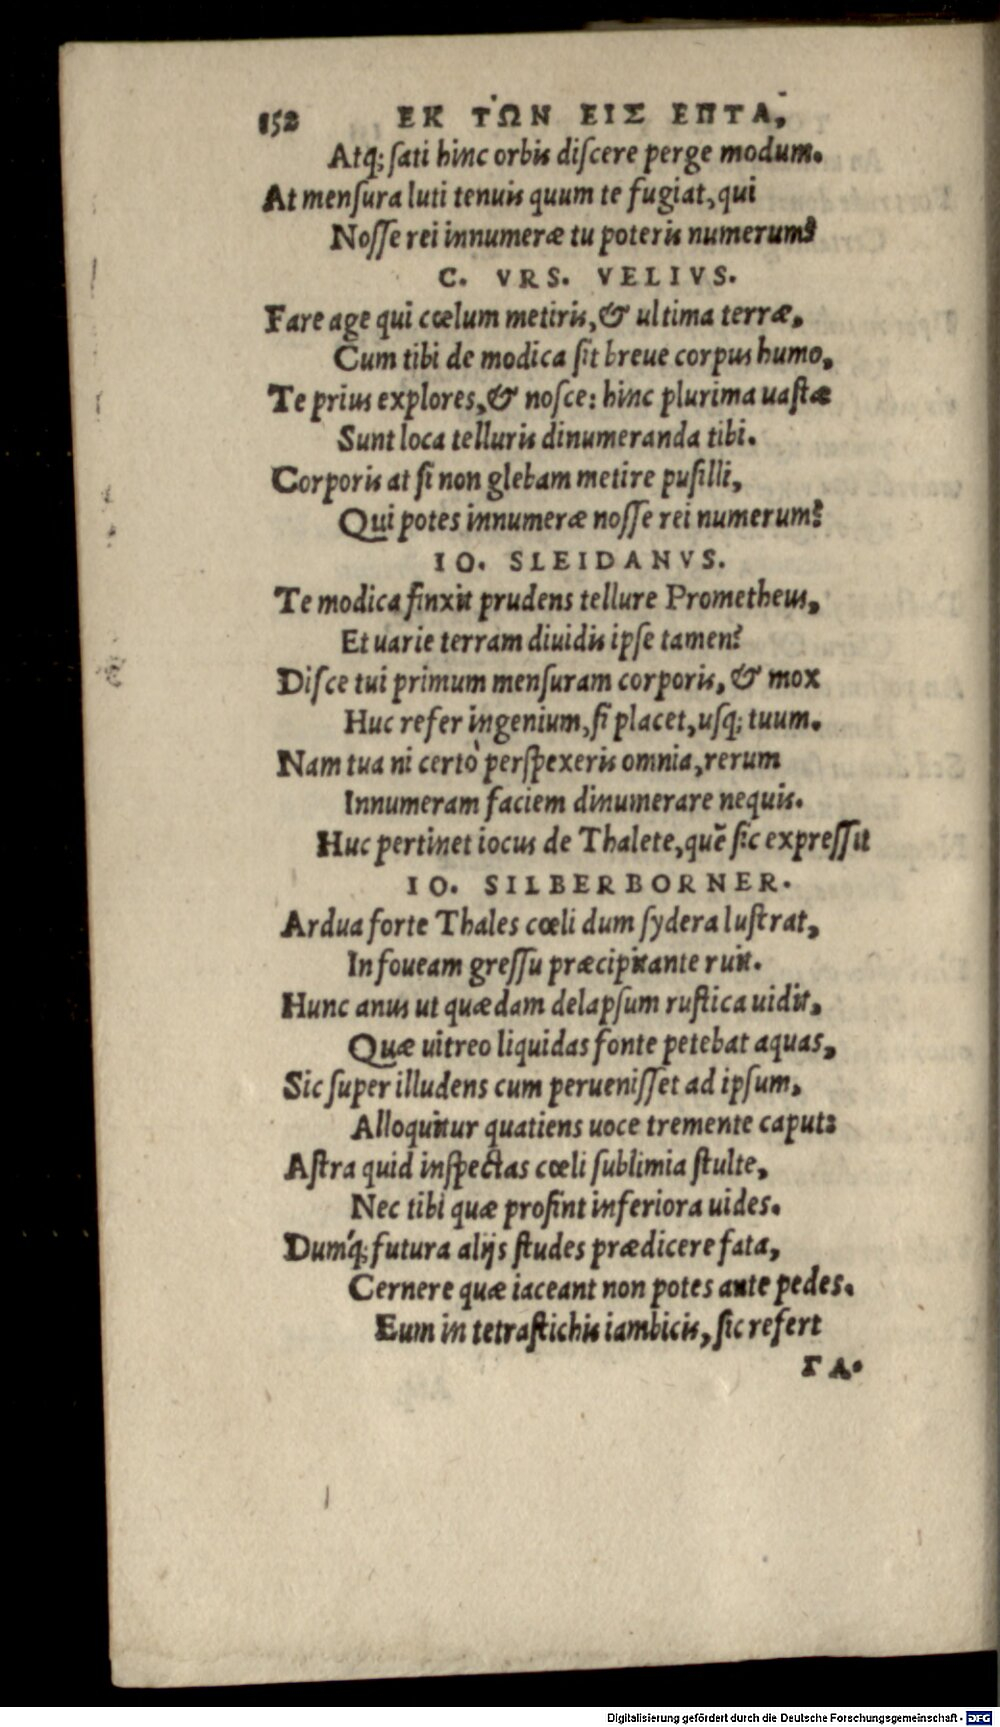 152 ΕΚ ΤΩΝ ΕΙΣ ΕΠΤΑ,
Atq; ſati hinc orbis diſcere perge modum.
At menſura luti tenuis quum te fugiat, qui
Noſſe rei innumeræ tu poteris numerum?
C. VRS. VELIVS.
Fare age qui cœlum metiris, & ultima terræ,
Cum tibi de modica ſit breue corpus humo,
Te prius explores, & noſce: hinc plurima uaſtæ
Sunt loca telluris dinumeranda tibi.
Corporis at ſi non glebam metire puſilli,
Qui potes innumeræ noſſe rei numerum?
IO. SLEIDANVS.
Te modica finxit prudens tellure Prometheus,
Et uarie terram diuidis ipſe tamen?
Diſce tui primum menſuram corporis, & mox
Huc refer ingenium, ſi placet, uſq; tuum.
Nam tua ni certò perſpexeris omnia, rerum
Innumeram faciem dinumerare nequis.
Huc pertinet iocus de Thalete, quẽ ſic expreſſit
IO. SILBERBORNER.
Ardua forte Thales cœli dum ſydera luſtrat,
In foueam greſſu præcipitante ruit.
Hunc anus ut quædam delapſum ruſtica uidit,
Quæ uitreo liquidas fonte petebat aquas,
Sic ſuper illudens cum perueniſſet ad ipſum,
Alloquitur quatiens uoce tremente caput:
Aſtra quid inſpectas cœli ſublimia ſtulte,
Nec tibi quæ proſint inferiora uides.
Dumq́; futura alijs ſtudes prædicere fata,
Cernere quæ iaceant non potes ante pedes.
Eum in tetraſtichis iambicis, ſic refert
ΓΑ.
Digitalisierung gefördert durch die Deutsche Forschungsgemeinschaft - DFG